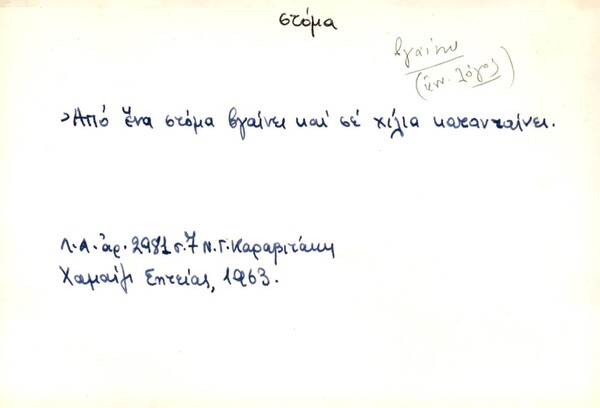 στόμα
βγαίνω
(ἐνν. λόγος)
›Ἀπό ἕνα στόμα βγαίνει καί σέ χίλια καταντaίνει.
Λ.Α. ἀρ. 2981 σ.7 Ν.Γ. Καραβιτάκη
Χαμαίζι Σητείας, 1963.